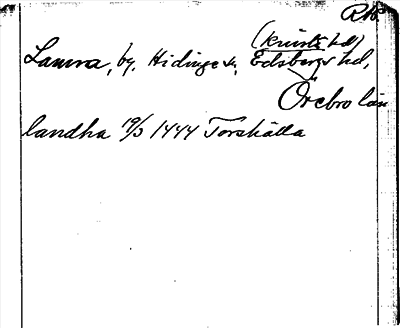 RAp
(Knista hd)
Lanna, by, Hidinge sn, Edsbergs hd,
Örebro län
landha 19/3 1444 Torshälla